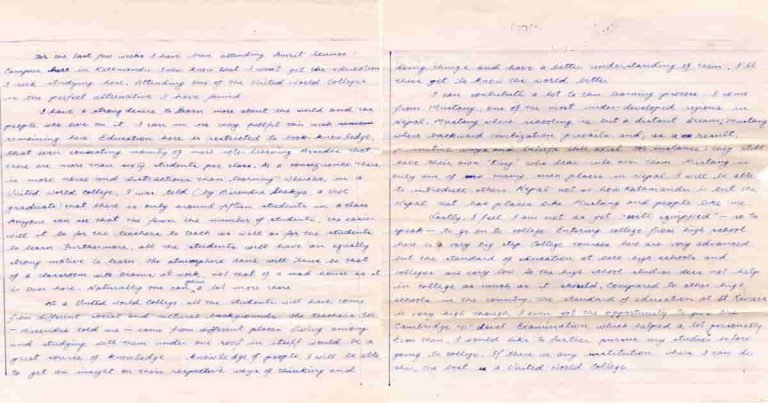 For the last few weeks I have been attending Amrit Science
Campus here in Katmandu. I now know that I won't get the education
I seek studying here. Attending one of the United World Colleges
is the perfect alternative I have found.
I have a strong desire to learn more about the world and the
people who live on it. I can in no way fulfill this wish
remaining here. Education here is restricted to book knowledge,
that even consisting mainly of mere rote-learning. Besides that
there are more than sixty students per class. As a consequence there
is more noise and distractions than learning. Whereas, in a
United World College, I was told (by Birendra Shakya, a UWC
graduate) that there is only around fifteen students in a class.
Anyone can see that the fewer the number of students, the easier
will it be for the teachers to teach as well as for the students
to learn. Furthermore, all the students will have an equally
strong motive to learn. The atmosphere there will be that
of a classroom with brains at work, not that of a mad house as it
is over here. Naturally one can gain a lot more there.
At a United World College, all the students will have come
from different social and cultural backgrounds. The teachers too
- Birendra told me - came from different places. Living among
and studying with them under one roof in itself would be a
great source of knowledge. Knowledge of people, I will be able
to get an insight on their respective ways of thinking and
doing things and have a better understanding of them. I'll
then get to know the world better.
I can contribute a lot to this learning process. I come
from Mustang, one of the most under-developed regions in
Nepal, Mustang where schooling is but a distant dream; Mustang
where backward civilization prevails and, as a result,
primitive ways and beliefs still exist. For instance: they still
have their own "King" who bears rule over them. Mustang is
only one of many such places in Nepal. I will be able
to introduce others Nepal not as how Katamandu is but the
Nepal that has places like Mustang and people like me.
Lastly, I feel I am not as yet "well equipped" - so to
speak - to go on to college. Entering college from high school
here is a very big step. College courses here are very advanced
but the standard of education at both high schools and
colleges are very low. So the high school studies does not help
in college as much as it should. Compared to other high
schools in the country, the standard of education at St Xavier's
is very high though. I even got the opportunity to give the
Cambridge 'O' level Examination which helped a lot personally.
Even then, I would like to further pursue my studies before
going to college. If there is any institution where I can do
this, the best is a United World College.